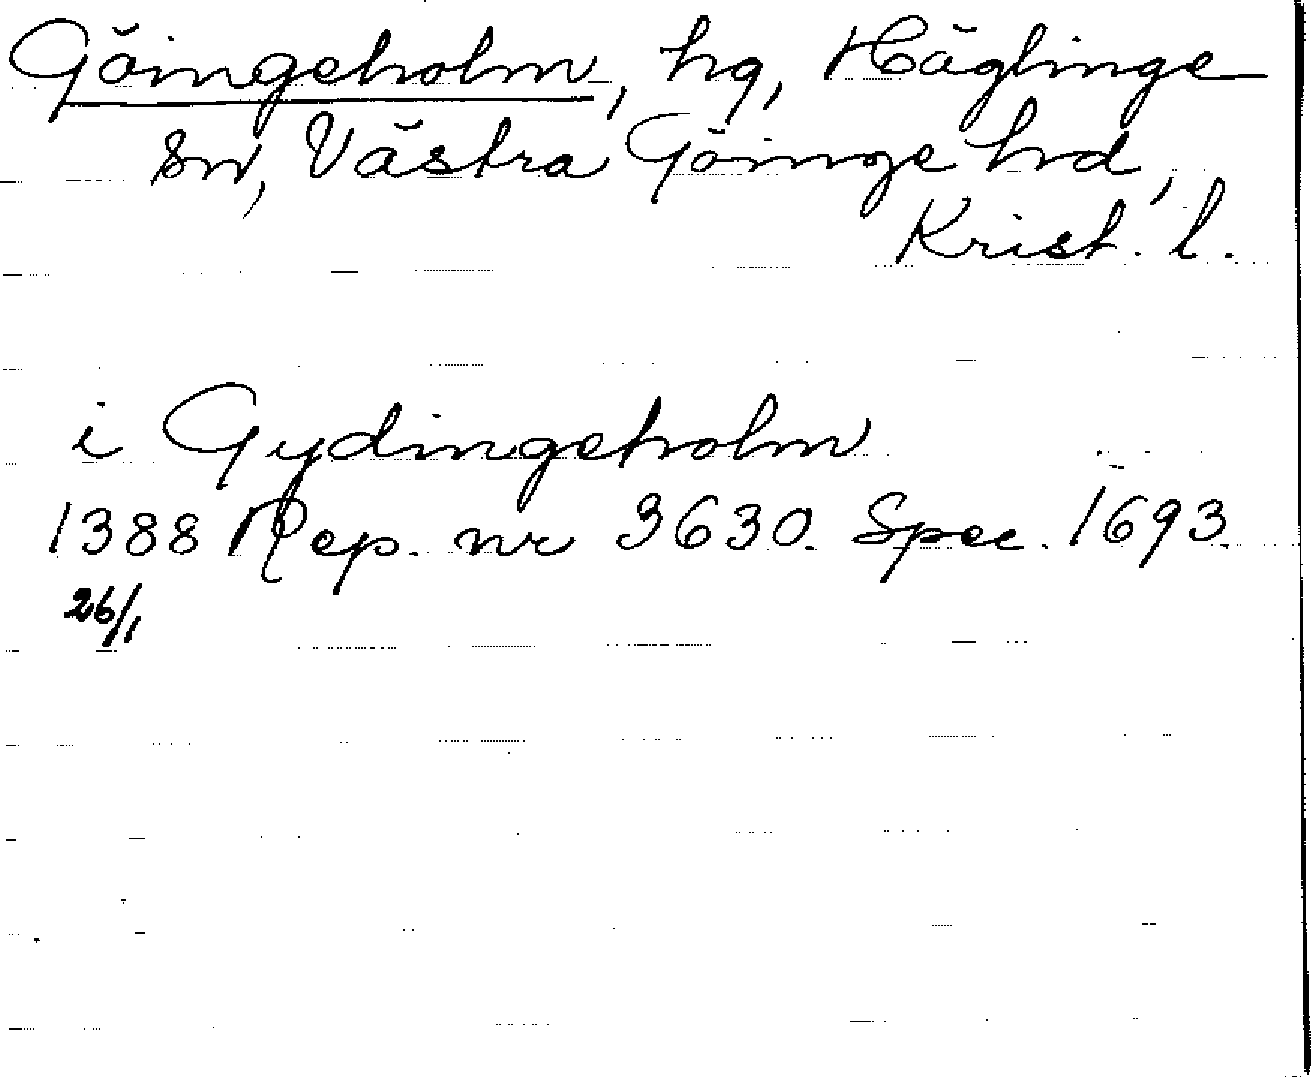 Göingeholm, hg, Häglinge
sn, Västra Göinge hd,
Krist. l.
i Gydingeholm
1388 Rep. nr 3630. Spec. 1693
26/1